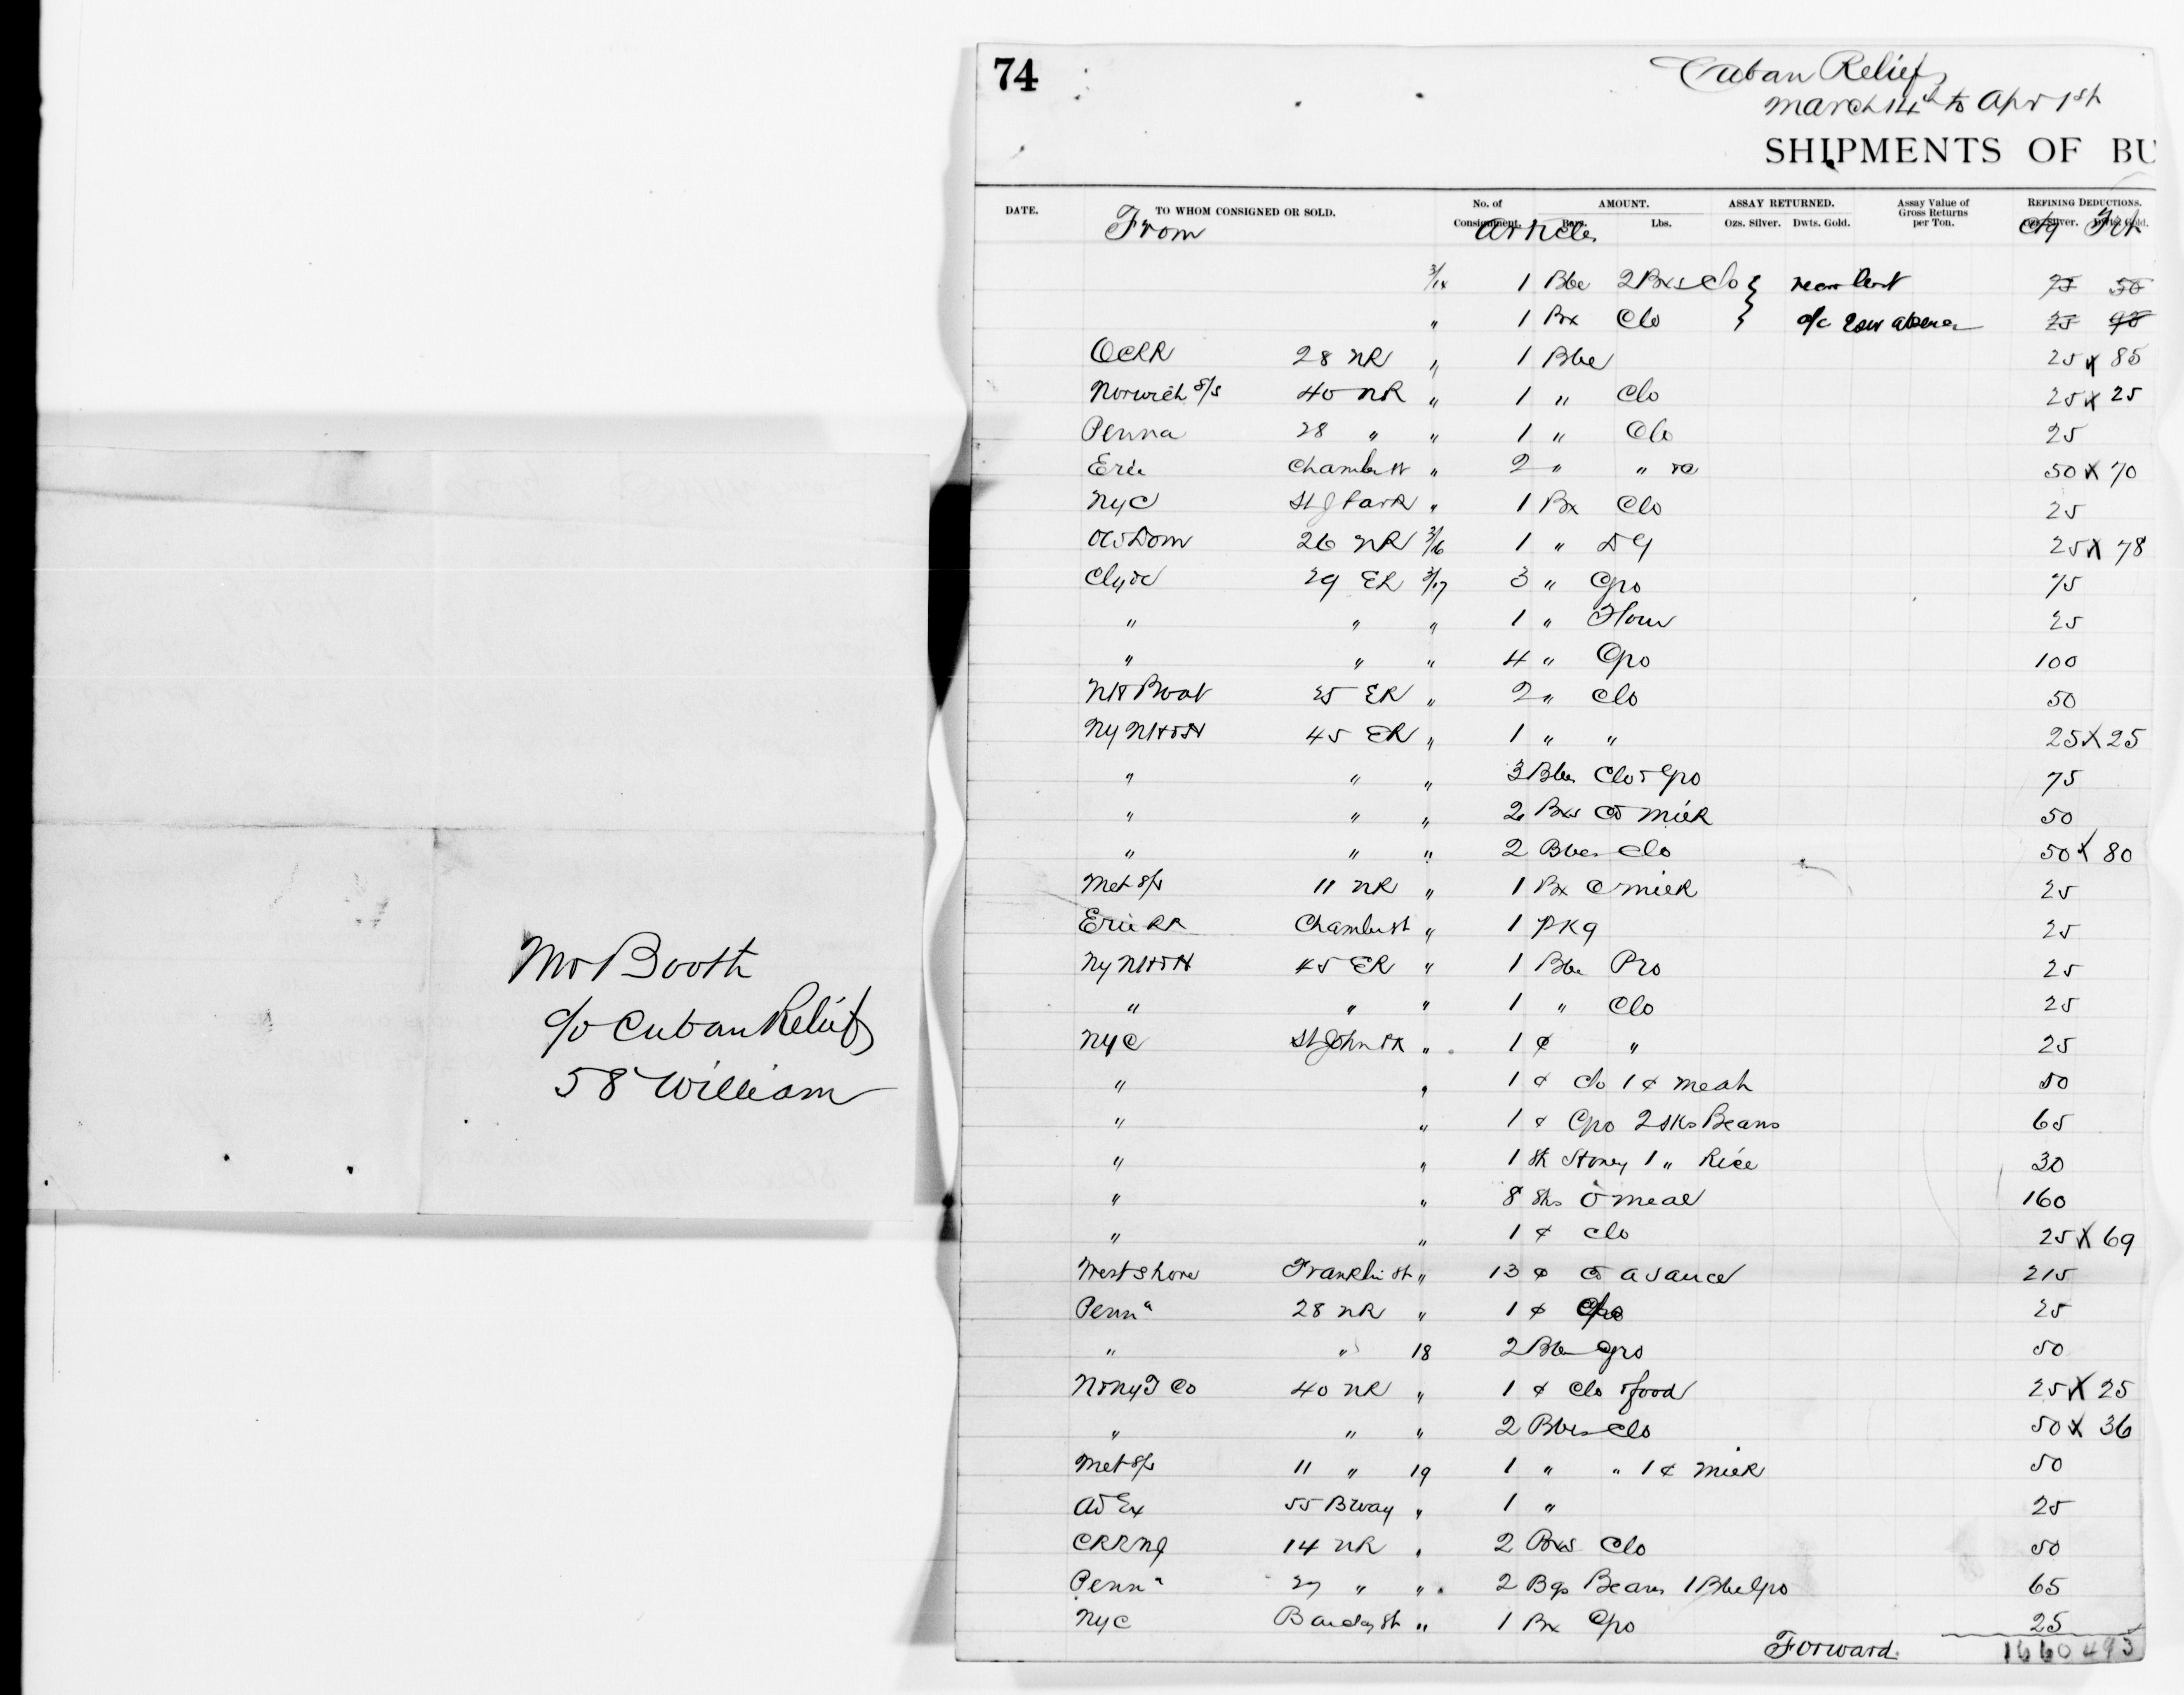 Mr Booth
c/o Cuban Relief
58 William
74
Cuban Relief
March 14th to Apr 1st
SHIPMENTS OF BU
DATE. TO WHOM CONSIGNED OR SOLD. No. of Consignment. AMOUNT. Bars. Lbs. ASSAY RETURNED. Ozs. Silver. Dwts. Gold. Assay Value of Gross Returns per Ton. REFINING DEDUCTIONS. Ozs. Silver. Dwts. Gold.
From Articles Ctg Frt
3/14 1 Bbl 2 Bxs Clo 25 50
" 1 Bx Clo 25 90
OCRR 28 NR " 1 Bbl 25 x 85
Norwich S/S 40 NR " 1 " Clo 25 x 25
Penna 28 " " 1 " Clo 25
Erie Chamber St " 2 " " 50 x 70
NyC St J Park " 1 Bx Clo 25
Old Dom 26 NR 3/16 1 " DG 25 x 78
Clyde 29 ER 3/17 3 " Gro 75
" " " 1 " Flour 25
" " " 4 " Gro 100
NH Boat 25 ER " 2 " Clo 50
Ny NH & H 45 ER " 1 " " 25 x 25
" " " 3 Bbls Clo & Gro 75
" " " 2 Bxs Cd Milk 50
" " " 2 Bbls Clo 50 x 80
Met S/s 11 NR " 1 Bx C milk 25
Erie RR Chamber St " 1 Pkg 25
Ny NH & H 45 ER " 1 Bbl Pro 25
" " " 1 " Clo 25
NyC St John Pk " 1 ¢ " 25
" " 1 ¢ clo 1 ¢ meat 50
" " 1 ¢ Gro 2 sks Beans 65
" " 1 Sk 1 " Rice 30
" " 8 Sks O meal 160
" " 1 ¢ Clo 25 x 69
West Shore Franklin St " 13 ¢ Cd a sauce 215
Penna 28 NR " 1 ¢ 25
" " 18 2 Bbls Gro 50
N & Ny T Co 40 NR " 1 ¢ Clo & food 25 x 25
" " " 2 Bbls Clo 50 x 36
Met S/s 11 " 19 1 " " 1 ¢ milk 50
Ad Ex 55 Bway " 1 " 25
CRRNJ 14 NR " 2 Bxs Clo 50
Penna 27 " " 2 Bgs Beans 1 Bbl Gro 65
NyC Barclay St " 1 Bx Gro 25
Forward 1660 493